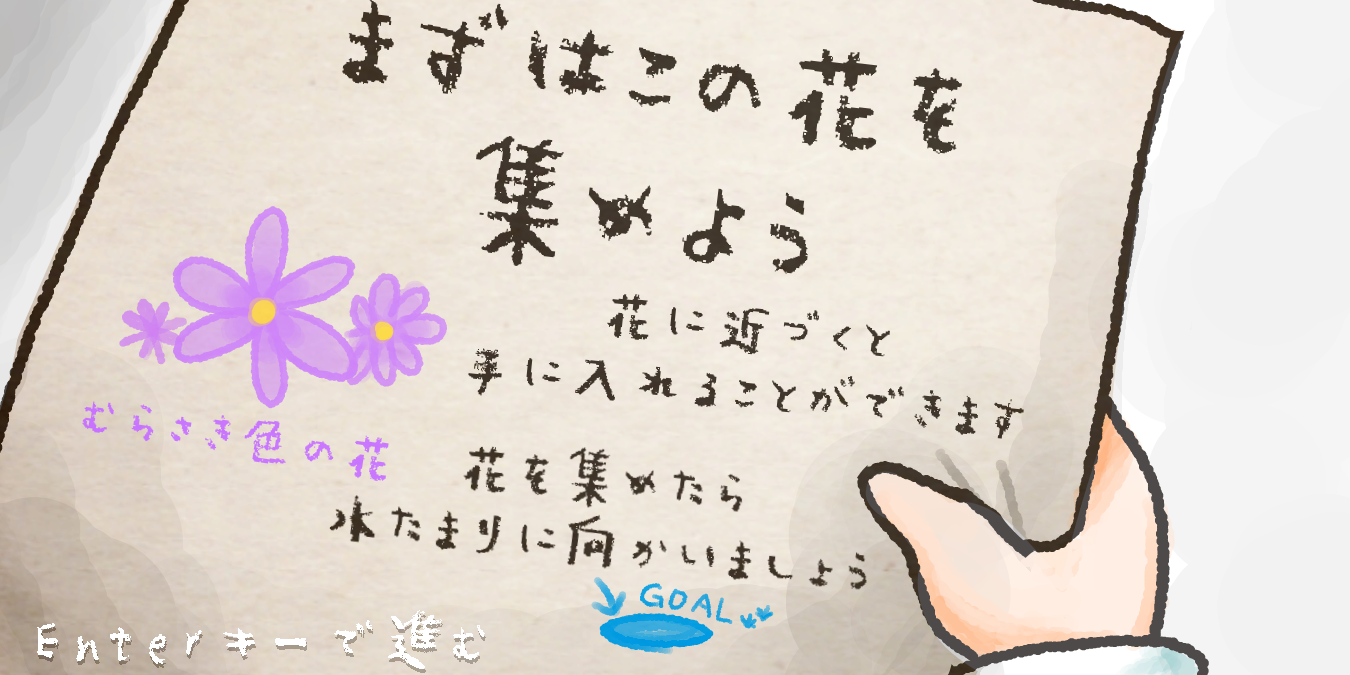 まずはこの花を
集めよう
花に近づくと
手に入れることができます
むらさき色の花
花を集めたら
水たまりに向かいましょう
GOAL
Enterキーで進む